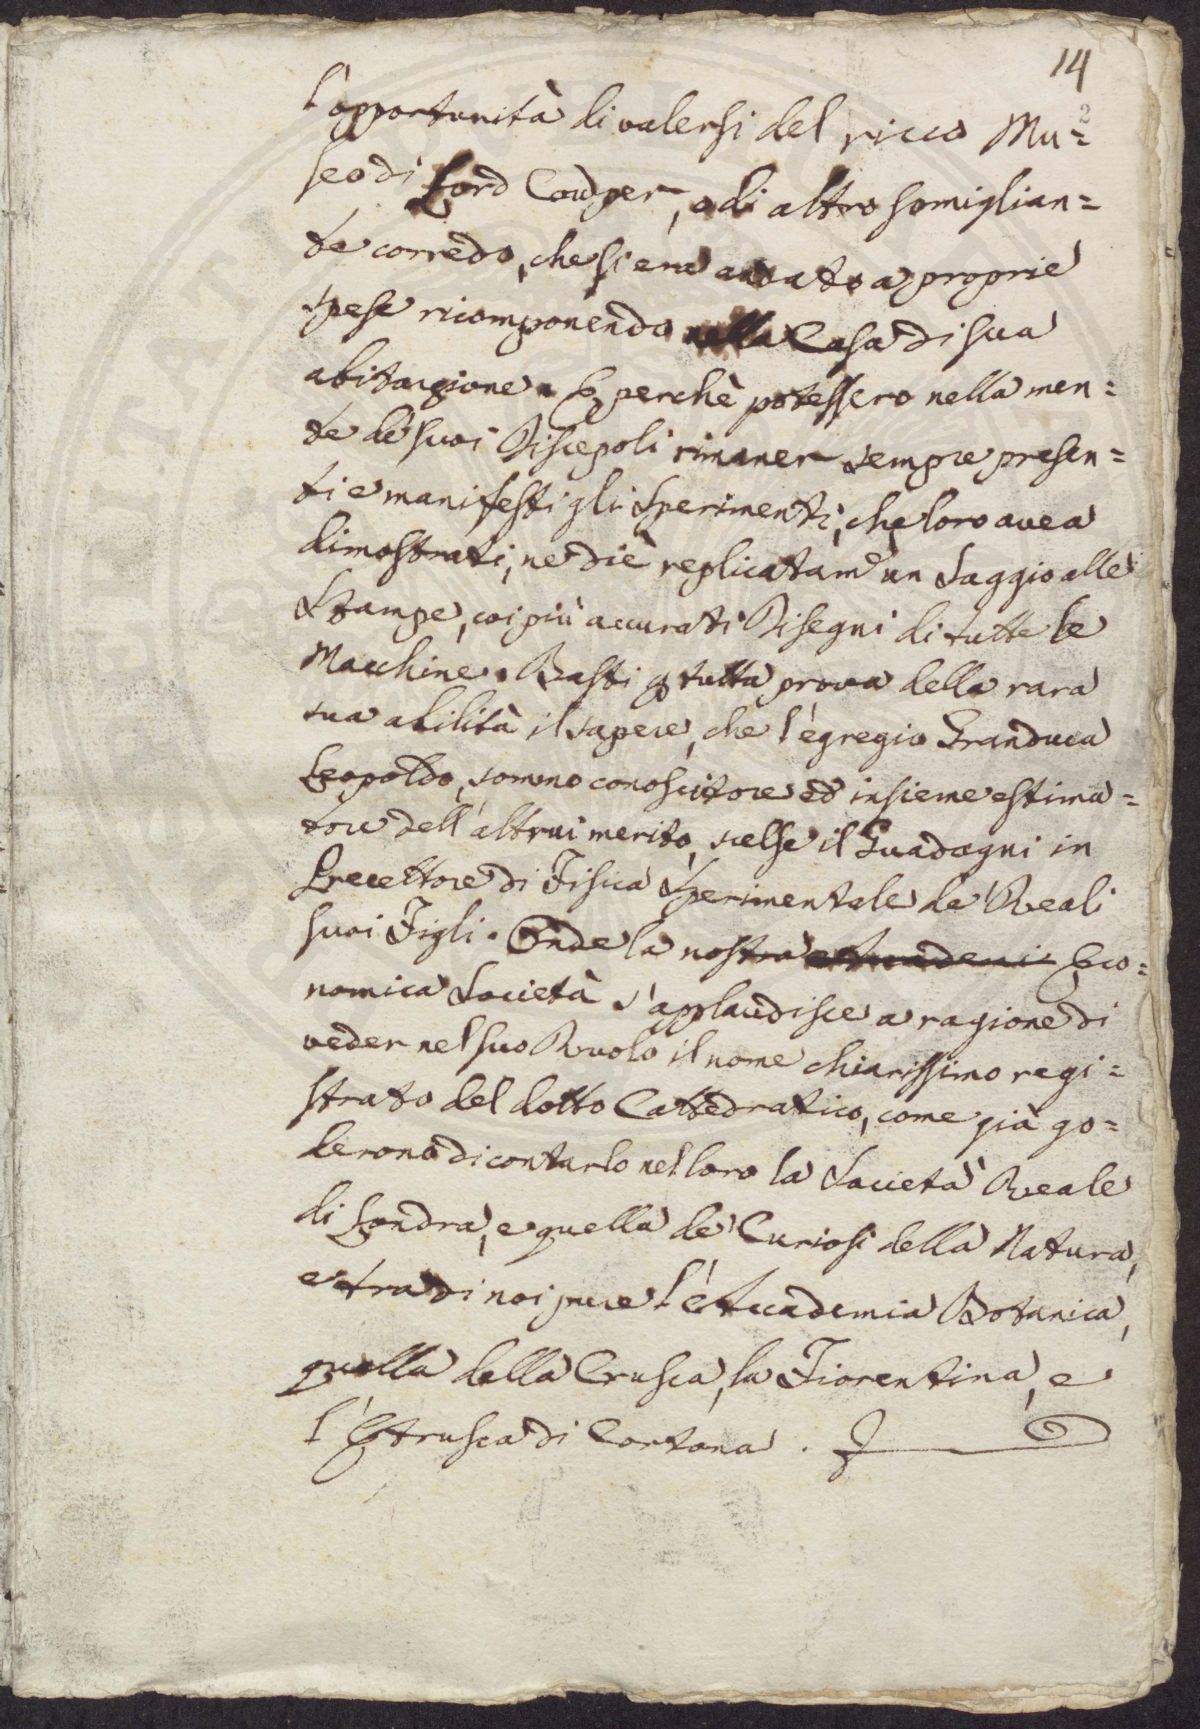 14
2
l'opportunità di valersi del ricco Mu=
seo di Lord Cowper, o di altro somiglian=
te corredo, che si era andato a proprie
spese ricomponendo nella Casa di sua
abitazione. E perchè potessero nella men=
te de' suoi Discepoli rimaner sempre presen=
ti e manifesti gli Sperimenti, che loro avea
dimostrati, ne diè replicatam.e un Saggio alle
Stampe, coi più accurati Disegni di tutte le
Macchine. Basti p tutta prova della rara
sua abilità il sapere, che l'egregio Granduca
Leopoldo, sommo conoscitore ed insieme estima=
tore dell'altrui merito, scelse il Guadagni in
Precettore di Fisica Sperimentale de' Reali
suoi Figli. Onde la nostra Accademi Eco=
nomica Società s'applaudisce a ragione di
veder nel suo Ruolo il nome chiarissimo regi=
strato del dotto Cattedratico, come già go=
derono di contarlo nel loro la Società Reale
di Londra, e quella de' Curiosi della Natura,
e tra di noi pure l'Accademia Botanica,
quella della Crusca, la Fiorentina, e
l'Etrusca di Cortona.